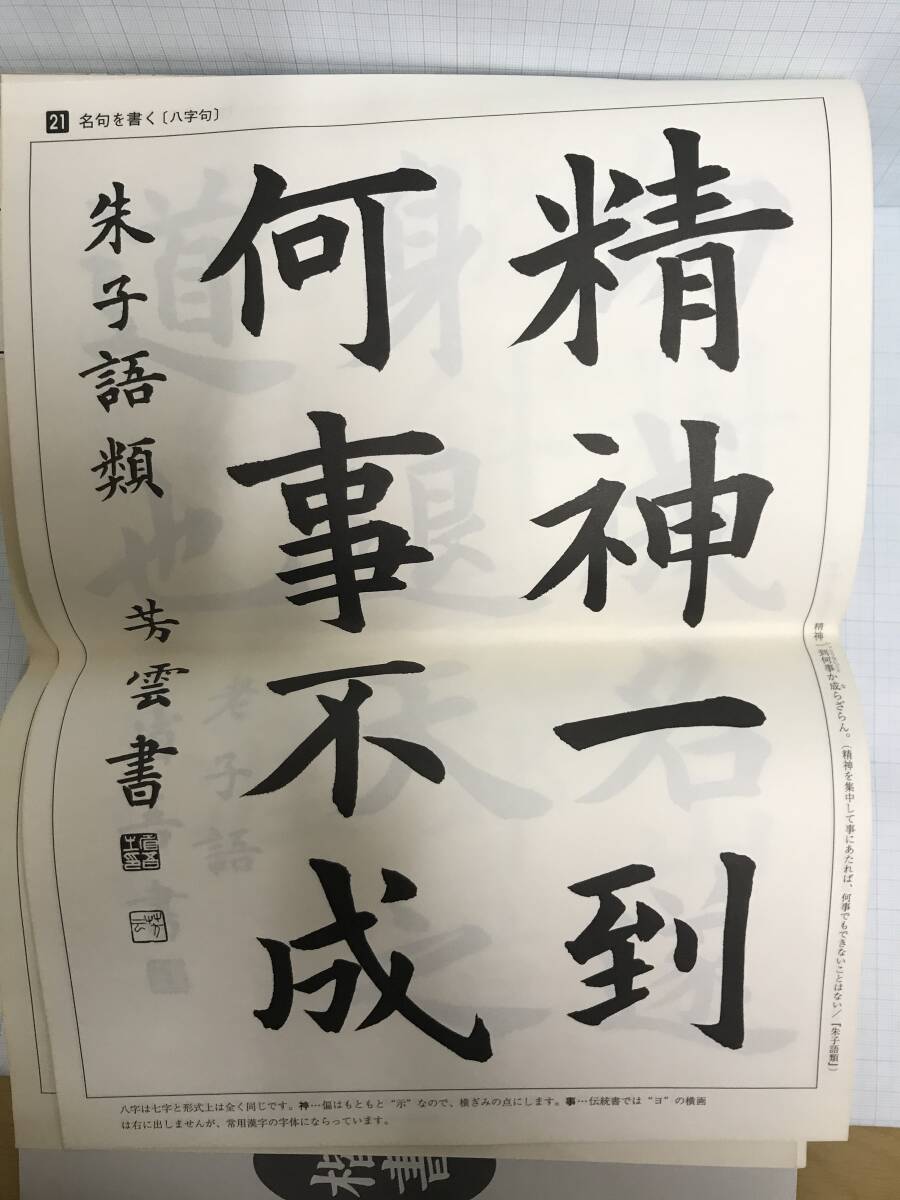 21 名句を書く〔八字句〕
精神一到
何事不成
朱子語類
芳雲書
精神一到何事か成らざらん。(精神を集中して事にあたれば、何事でもできないことはない/『朱子語類』)
八字は七字と形式上は全く同じです。神…偏はもともと“示”なので、横ぎみの点にします。事…伝統書では“ヨ”の横画
は右に出しませんが、常用漢字の字体にならっています。
楷書